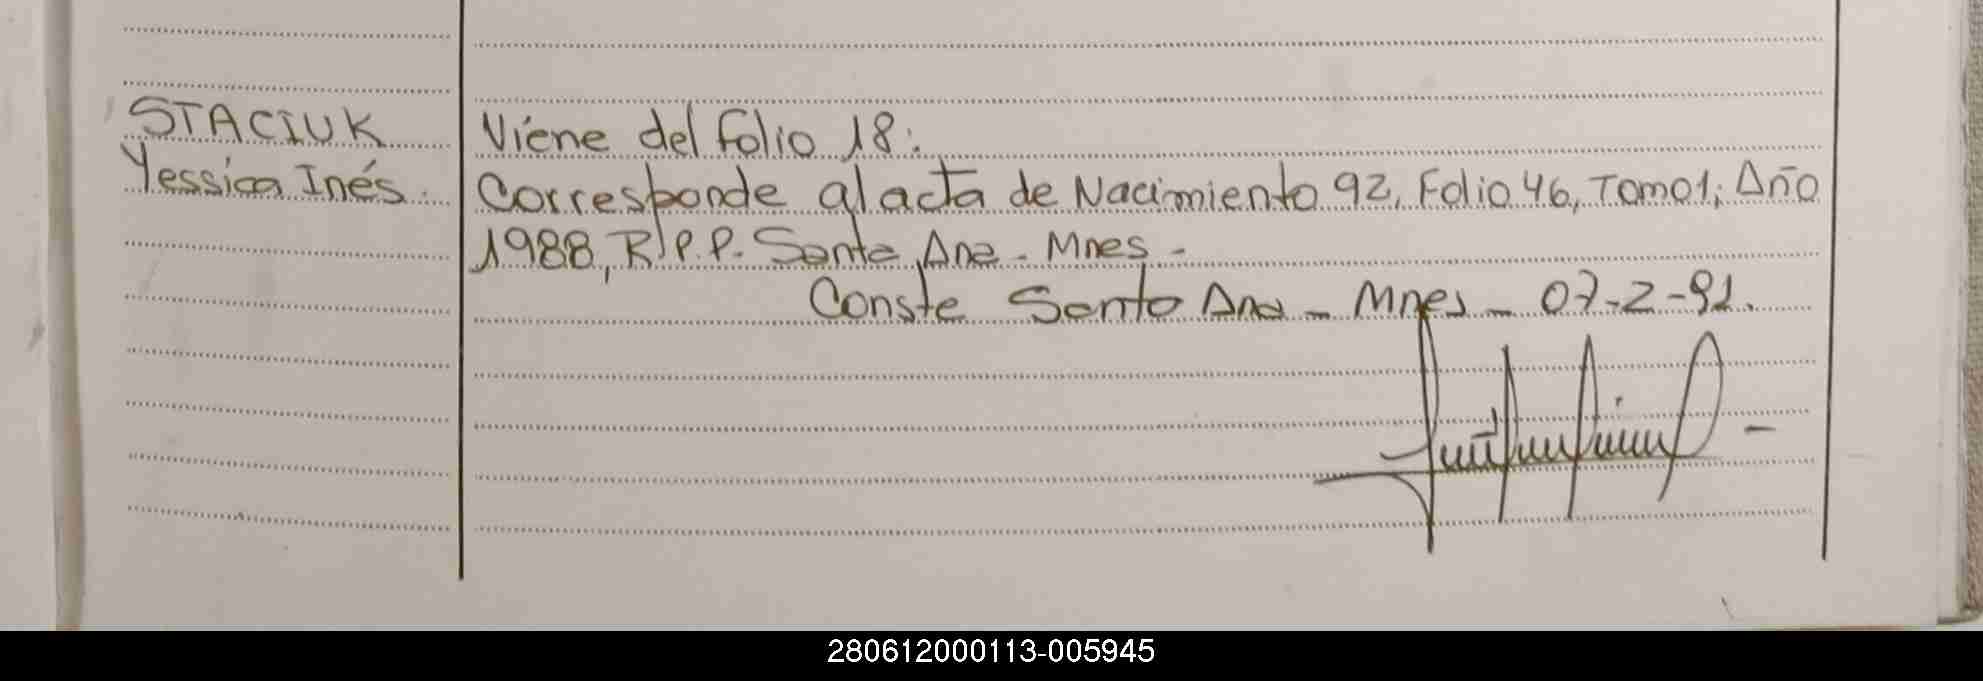 STACIUK
Yessica Inés.
Viene del folio 18:
Corresponde al acta de Nacimiento 92, Folio 46, Tomo 1; Año
1988, R.P.P. Santa Ana - Mnes -
Conste Santa Ana - Mnes - 07-2-91.
280612000113-005945